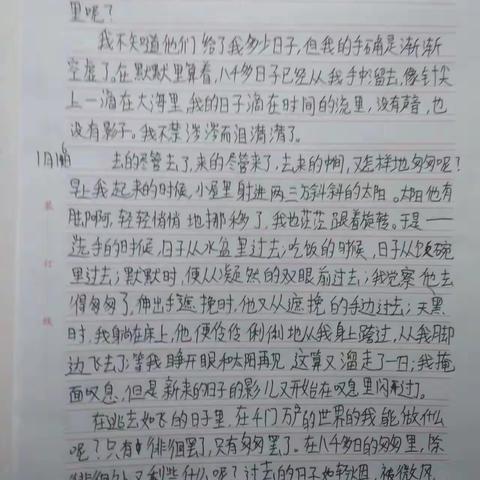 里呢？
我不知道他们给了我多少日子，但我的手确是渐渐
空虚了。在默默里算着，八千多日子已经从我手中溜去，像针尖
上一滴在大海里，我的日子滴在时间的流里，没有声音，也
没有影子。我不禁涔涔而泪潸潸了。
去的尽管去了，来的尽管来了，去来的中间，又怎样地匆匆呢？
早上我起来的时候，小屋里射进两三方斜斜的太阳。太阳他有
脚啊，轻轻悄悄地挪移了，我也茫茫跟着旋转。于是——
洗手的时候，日子从水盆里过去；吃饭的时候，日子从饭碗
里过去；默默时，便从凝然的双眼前过去；我觉察他去
得匆匆了，伸出手遮挽时，他又从遮挽的手边过去；天黑
时，我躺在床上，他便伶伶俐俐地从我身上跨过，从我脚
边飞去了；等我睁开眼和太阳再见，这算又溜走了一日；我掩
面叹息，但是新来的日子的影儿又开始在叹息里闪过了。
在逃去如飞的日子里，在千门万户的世界的我能做什么
呢？只有徘徊罢了，只有匆匆罢了。在八千多日的匆匆里，除
徘徊外，又剩些什么呢？过去的日子如轻烟，被微风
装
订
线